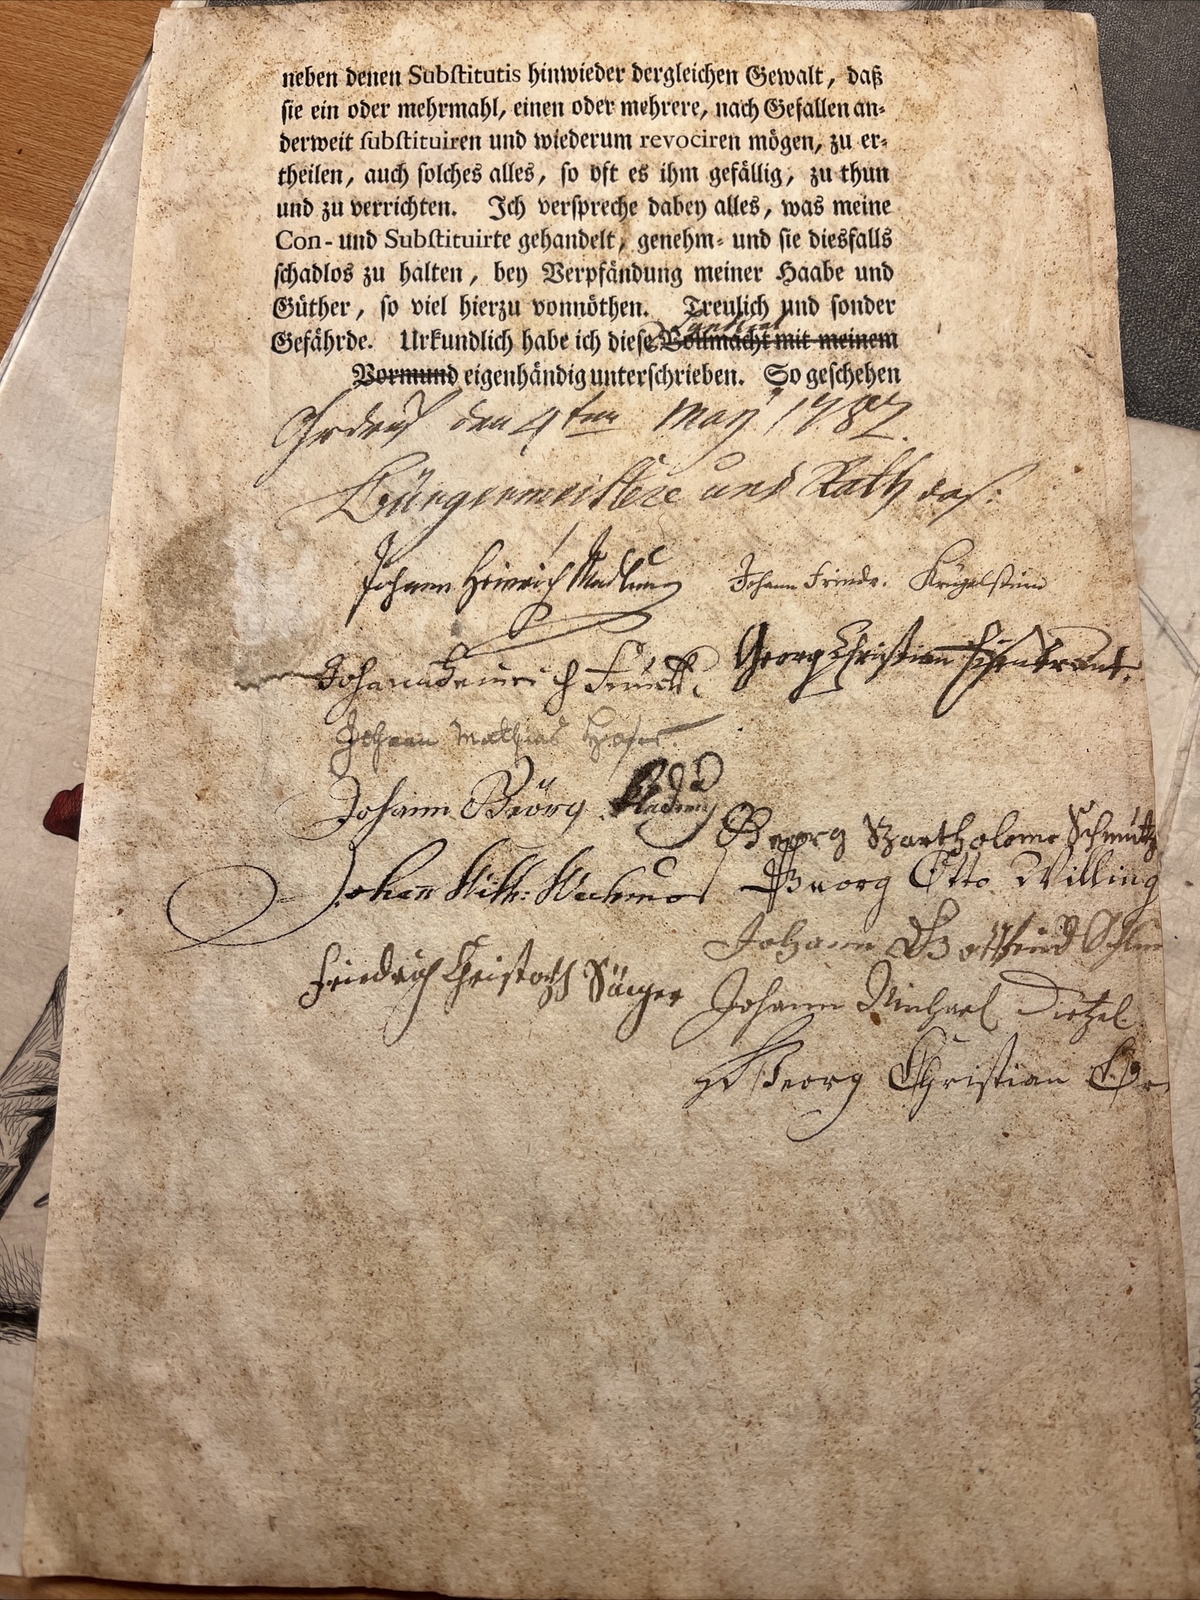 neben denen Substitutis hinwieder dergleichen Gewalt, daß
sie ein oder mehrmahl, einen oder mehrere, nach Gefallen an-
derweit substituiren und wiederum revociren mögen, zu er-
theilen, auch solches alles, so oft es ihm gefällig, zu thun
und zu verrichten. Ich verspreche dabey alles, was meine
Con- und Substituirte gehandelt, genehm- und sie diesfalls
schadlos zu halten, bey Verpfändung meiner Haabe und
Güther, so viel hierzu vonnöthen. Treulich und sonder
Gefährde. Urkundlich habe ich diese Vollmacht mit meinem
Vormund eigenhändig unterschrieben. So geschehen
den 4ten May 1787.
Bürgermeistere und Rath das:
Johann Heinrich Madlung Johann Friedr. Krügelstein
Johann Heinrich Georg Christian
Johann Mathias
Johann Georg
Georg Bartholome Schmutz
Johann Georg Otto Willing
Johann Gottfried
Friedrich Christoph Johann Michael Dietzel
Georg Christian